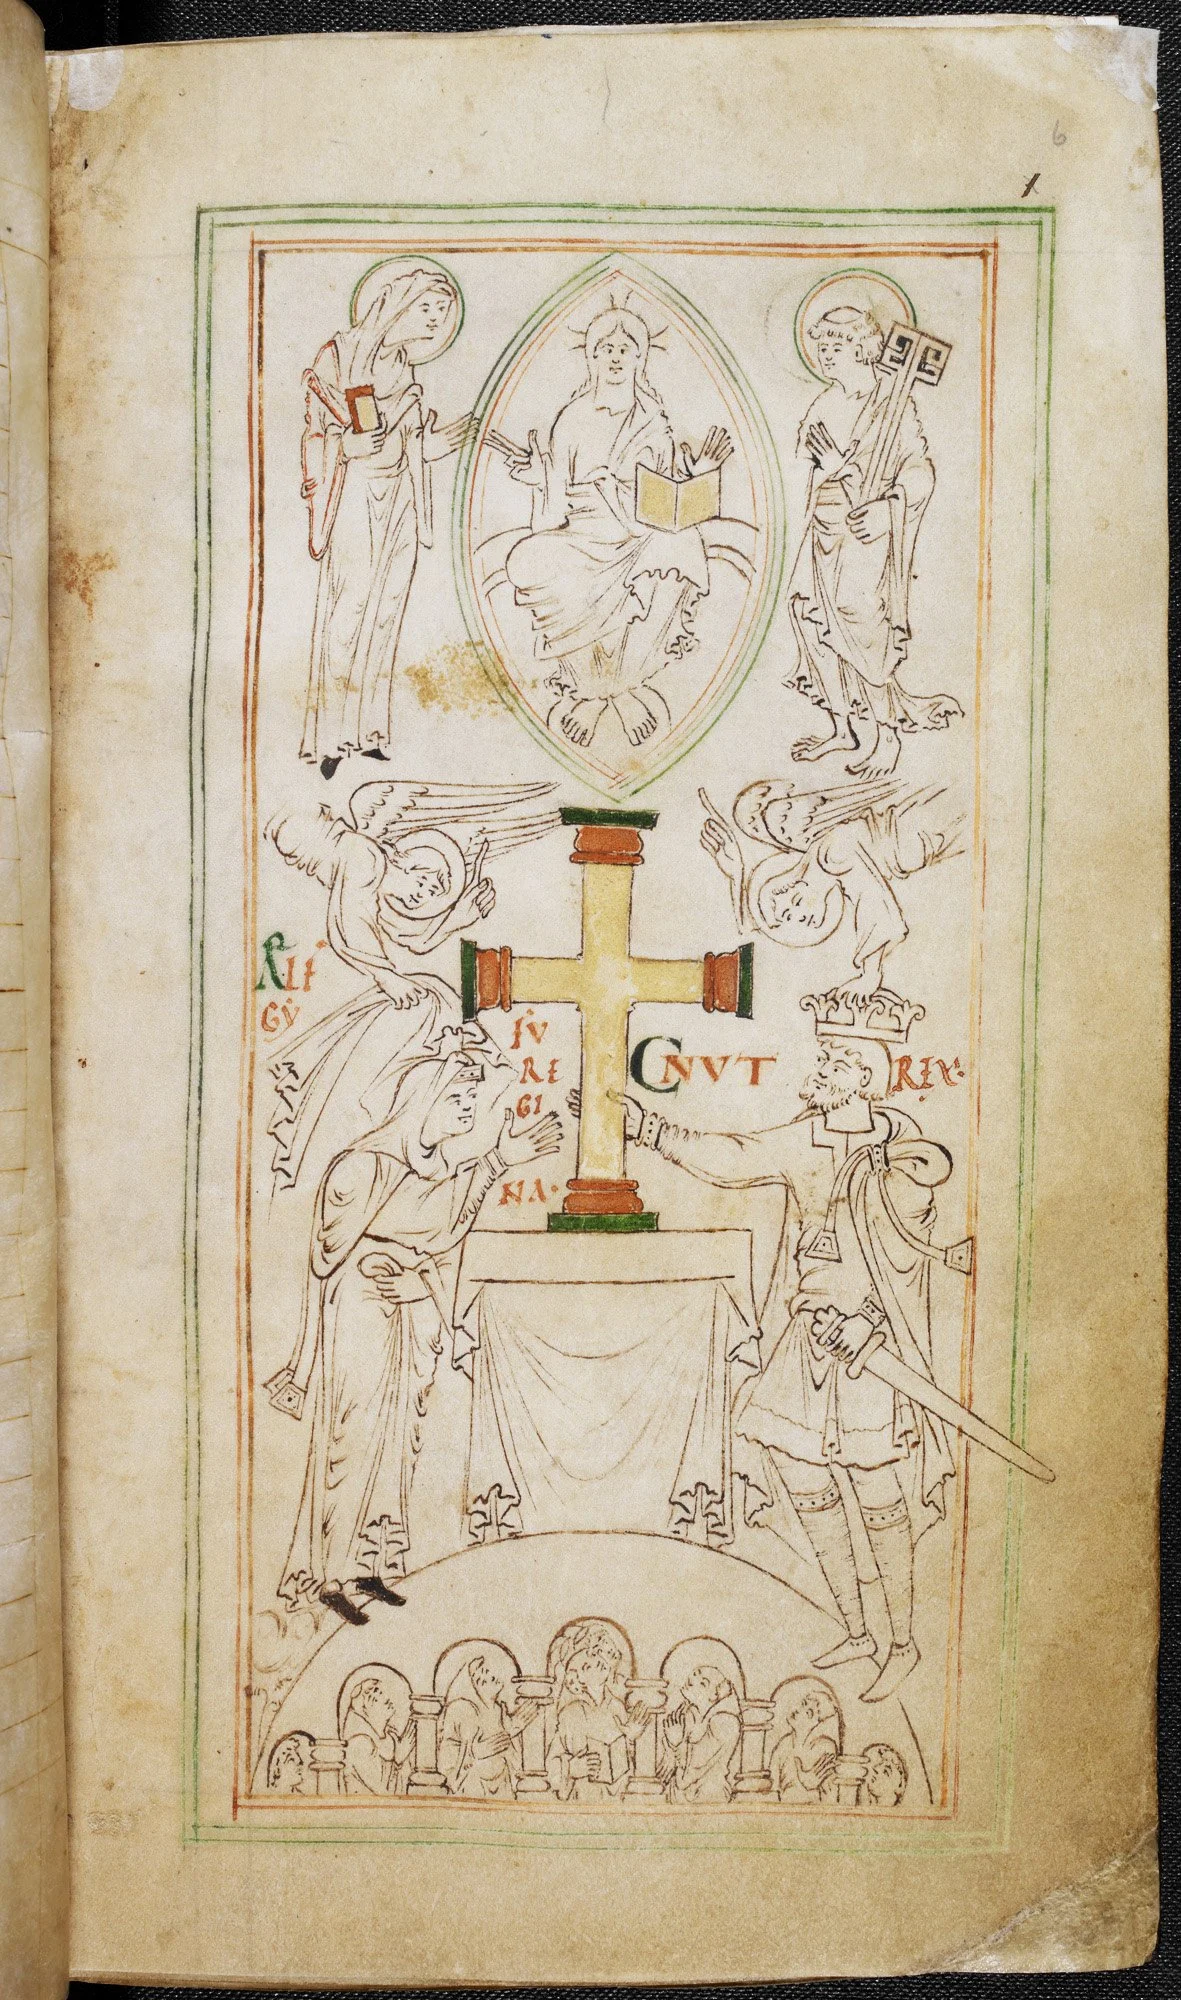 6
1
ÆLF
GẎ
FV
RE
GI
NA·
CNVT REX: